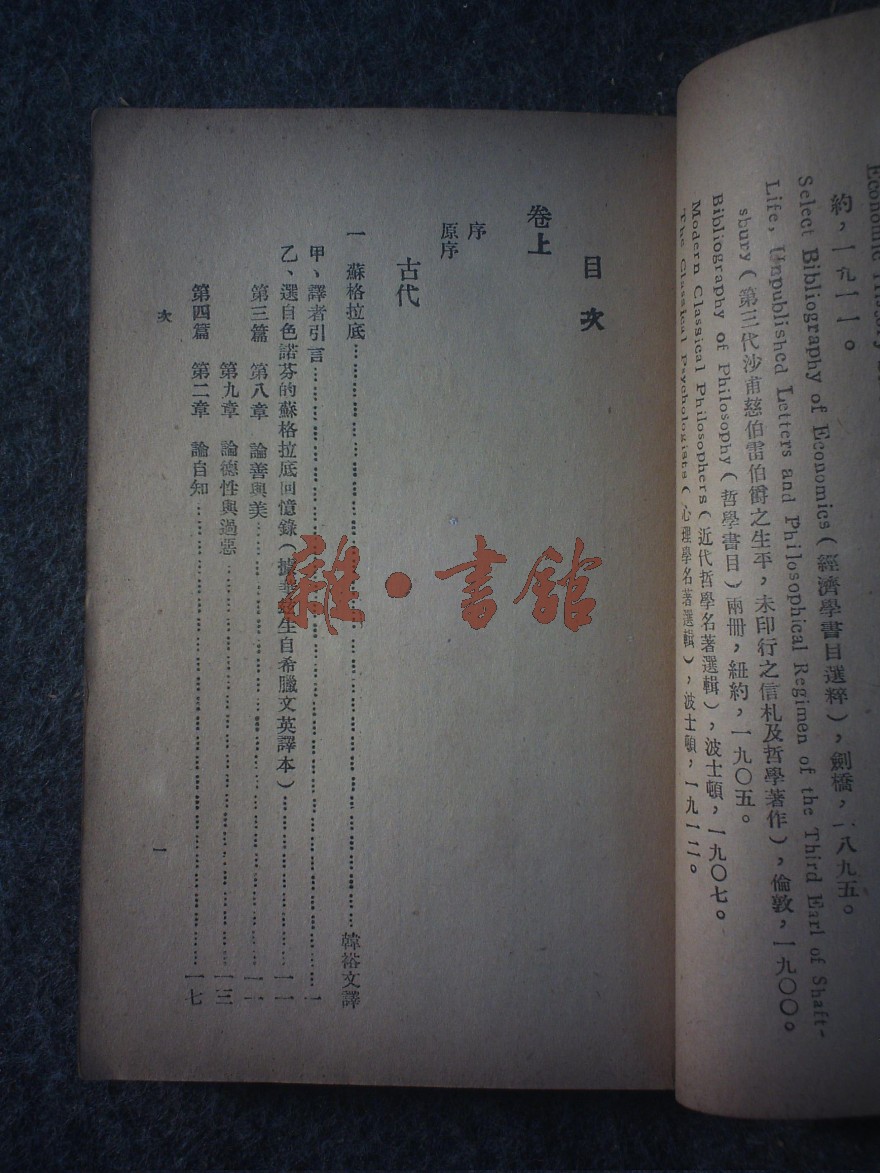 Economic History
約，一九一一。
Select Bibliography of Economics（經濟學書目選粹），劍橋，一八九五。
Life, Unpublished Letters and Philosophical Regimen of the Third Earl of Shaft-
sbury（第三代沙甫慈伯雷伯爵之生平，未印行之信札及哲學著作），倫敦，一九〇〇。
Bibliography of Philosophy（哲學書目）兩冊，紐約，一九〇五。
Modern Classical Philosophers（近代哲學名著選輯），波士頓，一九〇七。
The Classical Psychologists（心理學名著選輯），波士頓，一九一二。
目次
卷上
序
原序
古代
一 蘇格拉底……韓裕文譯
甲、譯者引言……一
乙、選自色諾芬的蘇格拉底回憶錄（據 生自希臘文英譯本）……一一
第三篇 第八章 論善與美……一一
第九章 論德性與過惡……一三
第四篇 第二章 論自知……一七
次
一
雜·書館